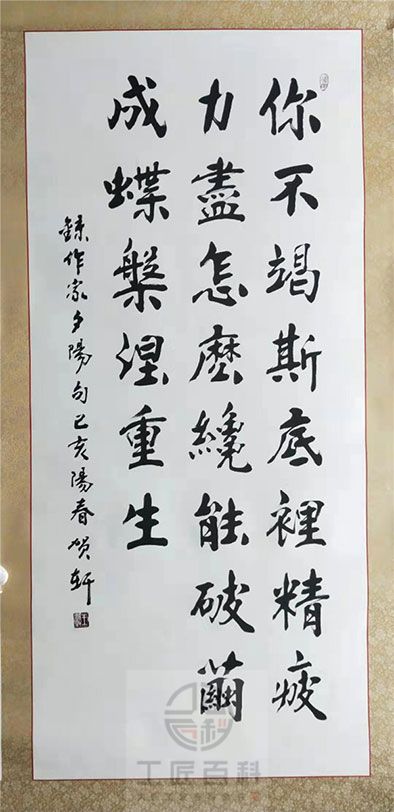 你不竭斯底裡精疲
力盡怎麼纔能破繭
成蝶槃涅重生
錄作家夕陽句己亥陽春贺軒
工匠百科